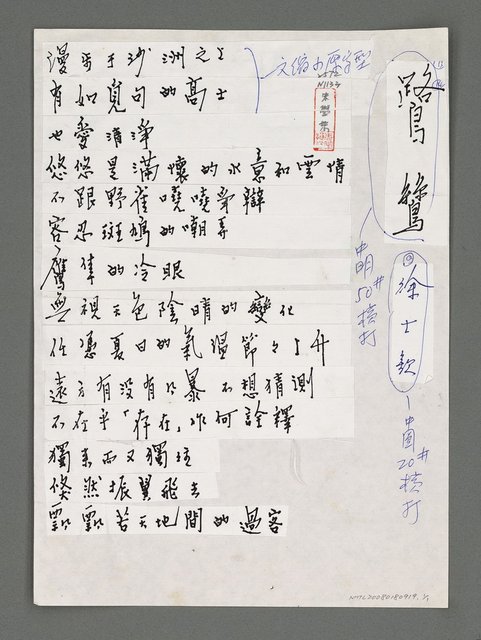 鷺鷥
徐士欽
漫步于沙洲之上
有如覓句的高士
也愛清淨
悠悠是滿懷的水意和雲情
不跟野雀嘵嘵爭辯
容忍斑鳩的嘲弄
鷹隼的冷眼
無視天色陰晴的變化
任憑夏日的氣溫節節上升
遠方有沒有風暴 不想猜測
不在乎「存在」作何詮釋
獨來而又獨往
倏然振翼飛去
飄飄若天地間的過客
中明50#橫打
中圓20#橫打
NMTL20080180919